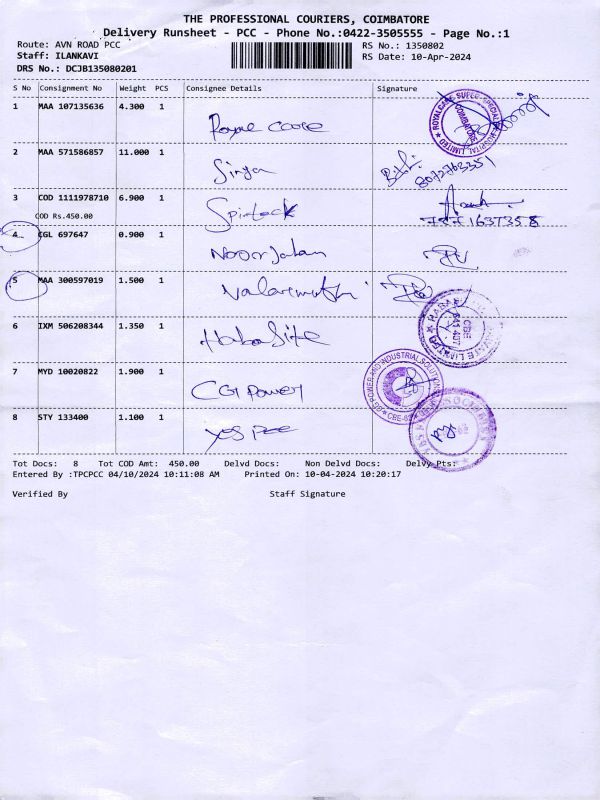 THE PROFESSIONAL COURIERS, COIMBATORE
Delivery Runsheet - PCC - Phone No.:0422-3505555 - Page No.:1
Route: AVN ROAD PCC RS No.: 1350802
Staff: ILANKAVI RS Date: 10-Apr-2024
DRS No.: DCJB135080201
S No Consignment No Weight PCS Consignee Details Signature
1 MAA 107135636 4.300 1 Royal Care
2 MAA 571586857 11.000 1
8072763351
3 COD 1111978710 6.900 1
COD Rs.450.00 7871637358
4 CGL 697647 0.900 1 Noorjahan
5 MAA 300597019 1.500 1
6 IXM 506208344 1.350 1
7 MYD 10020822 1.900 1 CGI Power
8 STY 133400 1.100 1
Tot Docs: 8 Tot COD Amt: 450.00 Delvd Docs: Non Delvd Docs: Delvy Pts:
Entered By :TPCPCC 04/10/2024 10:11:08 AM Printed On: 10-04-2024 10:20:17
Verified By Staff Signature